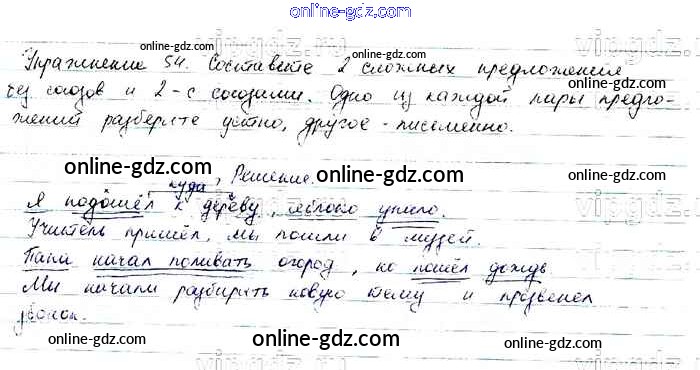 online-gdz.com
Упражнение 54. Составьте 2 сложных предложения
без союзов и 2-с союзами. Одно из каждой пары предло-
жений разберите устно, другое - письменно.
Решение.
куда
Я подошёл к дереву, яблоко упало.
Учитель пришёл, мы пошли в музей.
Папа начал поливать огород, но пошёл дождь
Мы начали разбирать новую тему и прозвенел
звонок.
online-gdz.com
online-gdz.com
online-gdz.com
online-gdz.com
online-gdz.com
online-gdz.com
online-gdz.com
online-gdz.com
online-gdz.com
vipgdz.ru
vipgdz.ru
vipgdz.ru